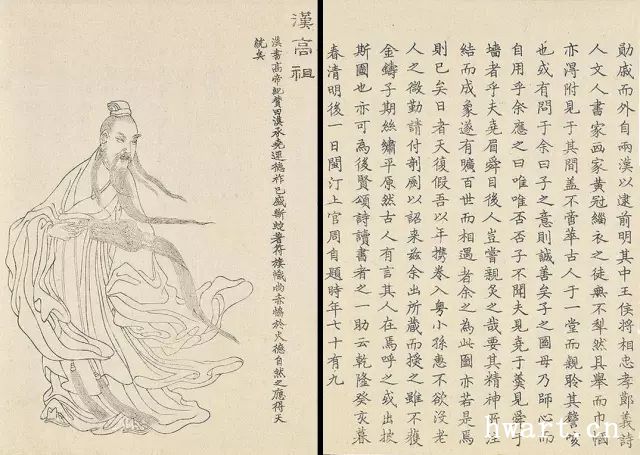 勛戚而外自兩漢以逮前明其中王侯將相忠孝節義詩
人文人書家画家黄冠緇衣之徒無不犂然具舉而巾幗
亦淂附見于其間盖不啻萃古人于一堂而親聆其謦欬
也或有問于余曰子之意則誠善矣子之圖毋乃師心而
自用乎余應之曰唯唯否否子不聞夫見堯于羹見舜于
墻者乎夫堯眉舜目後人豈嘗親炙之哉要其精神所注
結而成象遂有曠百世而相遇者余之為此圖亦若是焉
則已矣日者天復假吾以年携拳入粵小孫惠不欲没老
人之微勤請付剞劂以詔来兹余出所蔵而授之雖不獲
金鑄子期絲繡平原然古人有言其人在焉呼之或出披
斯圖也亦可為後賢頌詩讀書者之一助云乾隆癸亥暮
春清明後一日閩汀上官周自題時年七十有九
漢高祖
漢書高帝紀贊曰漢承堯運德祚已盛斷蛇著符旗幟尚赤恊於火德自然之應得天
統矣
hwart.cn